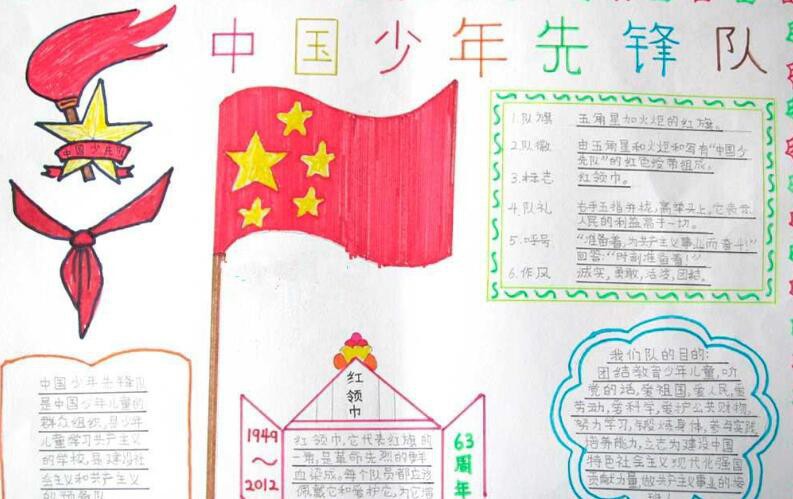 中国少年先锋队
中国少先队
1.队旗 五角星加火炬的红旗。
2.队徽 由五角星和火炬和写有“中国少
先队”的红色绶带组成。
3.标志 红领巾。
4.队礼 右手五指并拢,高举头上。它表示
人民的利益高于一切。
5.呼号 “准备着,为共产主义事业而奋斗!”
回答:“时刻准备着!”
6.作风 诚实,勇敢,活泼,团结。
中国少年先锋队
是中国少年儿童的
群众组织,是少年
儿童学习共产主义
的学校,是建设社
会主义和共产主义
的预备队
红领巾
1949
~
2012
红领巾,它代表红旗的
一角,是革命先烈的鲜
血染成。每个队员都应该
佩戴它和爱护它,为它增
63
周年
我们队的目的:
团结教育少年儿童,听
党的话,爱祖国,爱人民,爱
劳动,爱科学,爱护公共财物,
努力学习,锻炼身体,参与实践
培养能力,立志为建设中国
特色社会主义现代化强国
贡献力量,做共产主义事业的接